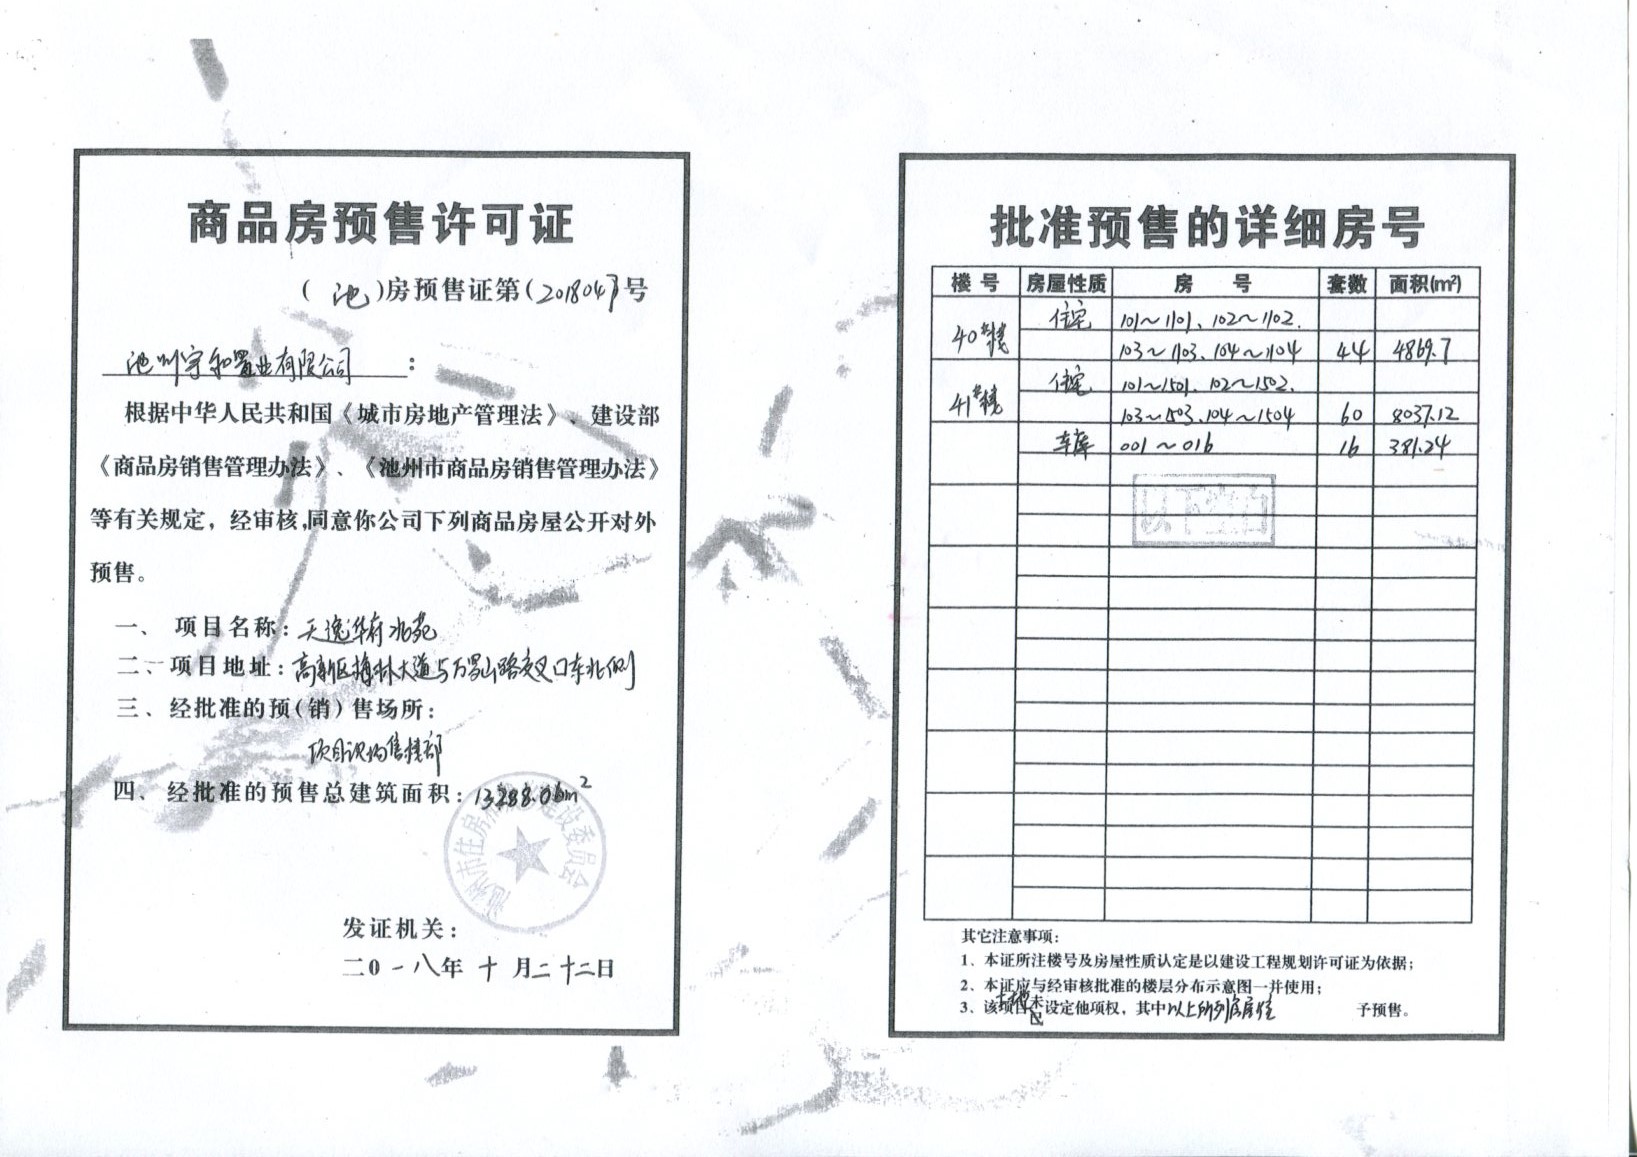 商品房预售许可证
(池)房预售证第(2018047)号
池州宇和置业有限公司:
根据中华人民共和国《城市房地产管理法》、建设部
《商品房销售管理办法》、《池州市商品房销售管理办法》
等有关规定，经审核,同意你公司下列商品房屋公开对外
预售。
一、项目名称:天逸华府北苑
二、项目地址:高新区搏林大道与万罗山路交叉口东北侧
三、经批准的预(销)售场所:
项目现场售楼部
四、经批准的预售总建筑面积:13288.06m²
池州市住房和城乡建设委员会
发证机关:
二0一八年十月二十二日
批准预售的详细房号
楼号 房屋性质 房号 套数 面积(m²)
40#楼 住宅 101~1101、102~1102.
103~1103、104~1104 44 4869.7
41#楼 住宅 101~1501、102~1502.
103~1503、104~1504 60 8037.12
车库 001~016 16 381.24
以下空白
其它注意事项:
1、本证所注楼号及房屋性质认定是以建设工程规划许可证为依据;
2、本证应与经审核批准的楼层分布示意图一并使用;
3、该项目土地未设定他项权，其中以上所列房屋准 予预售。